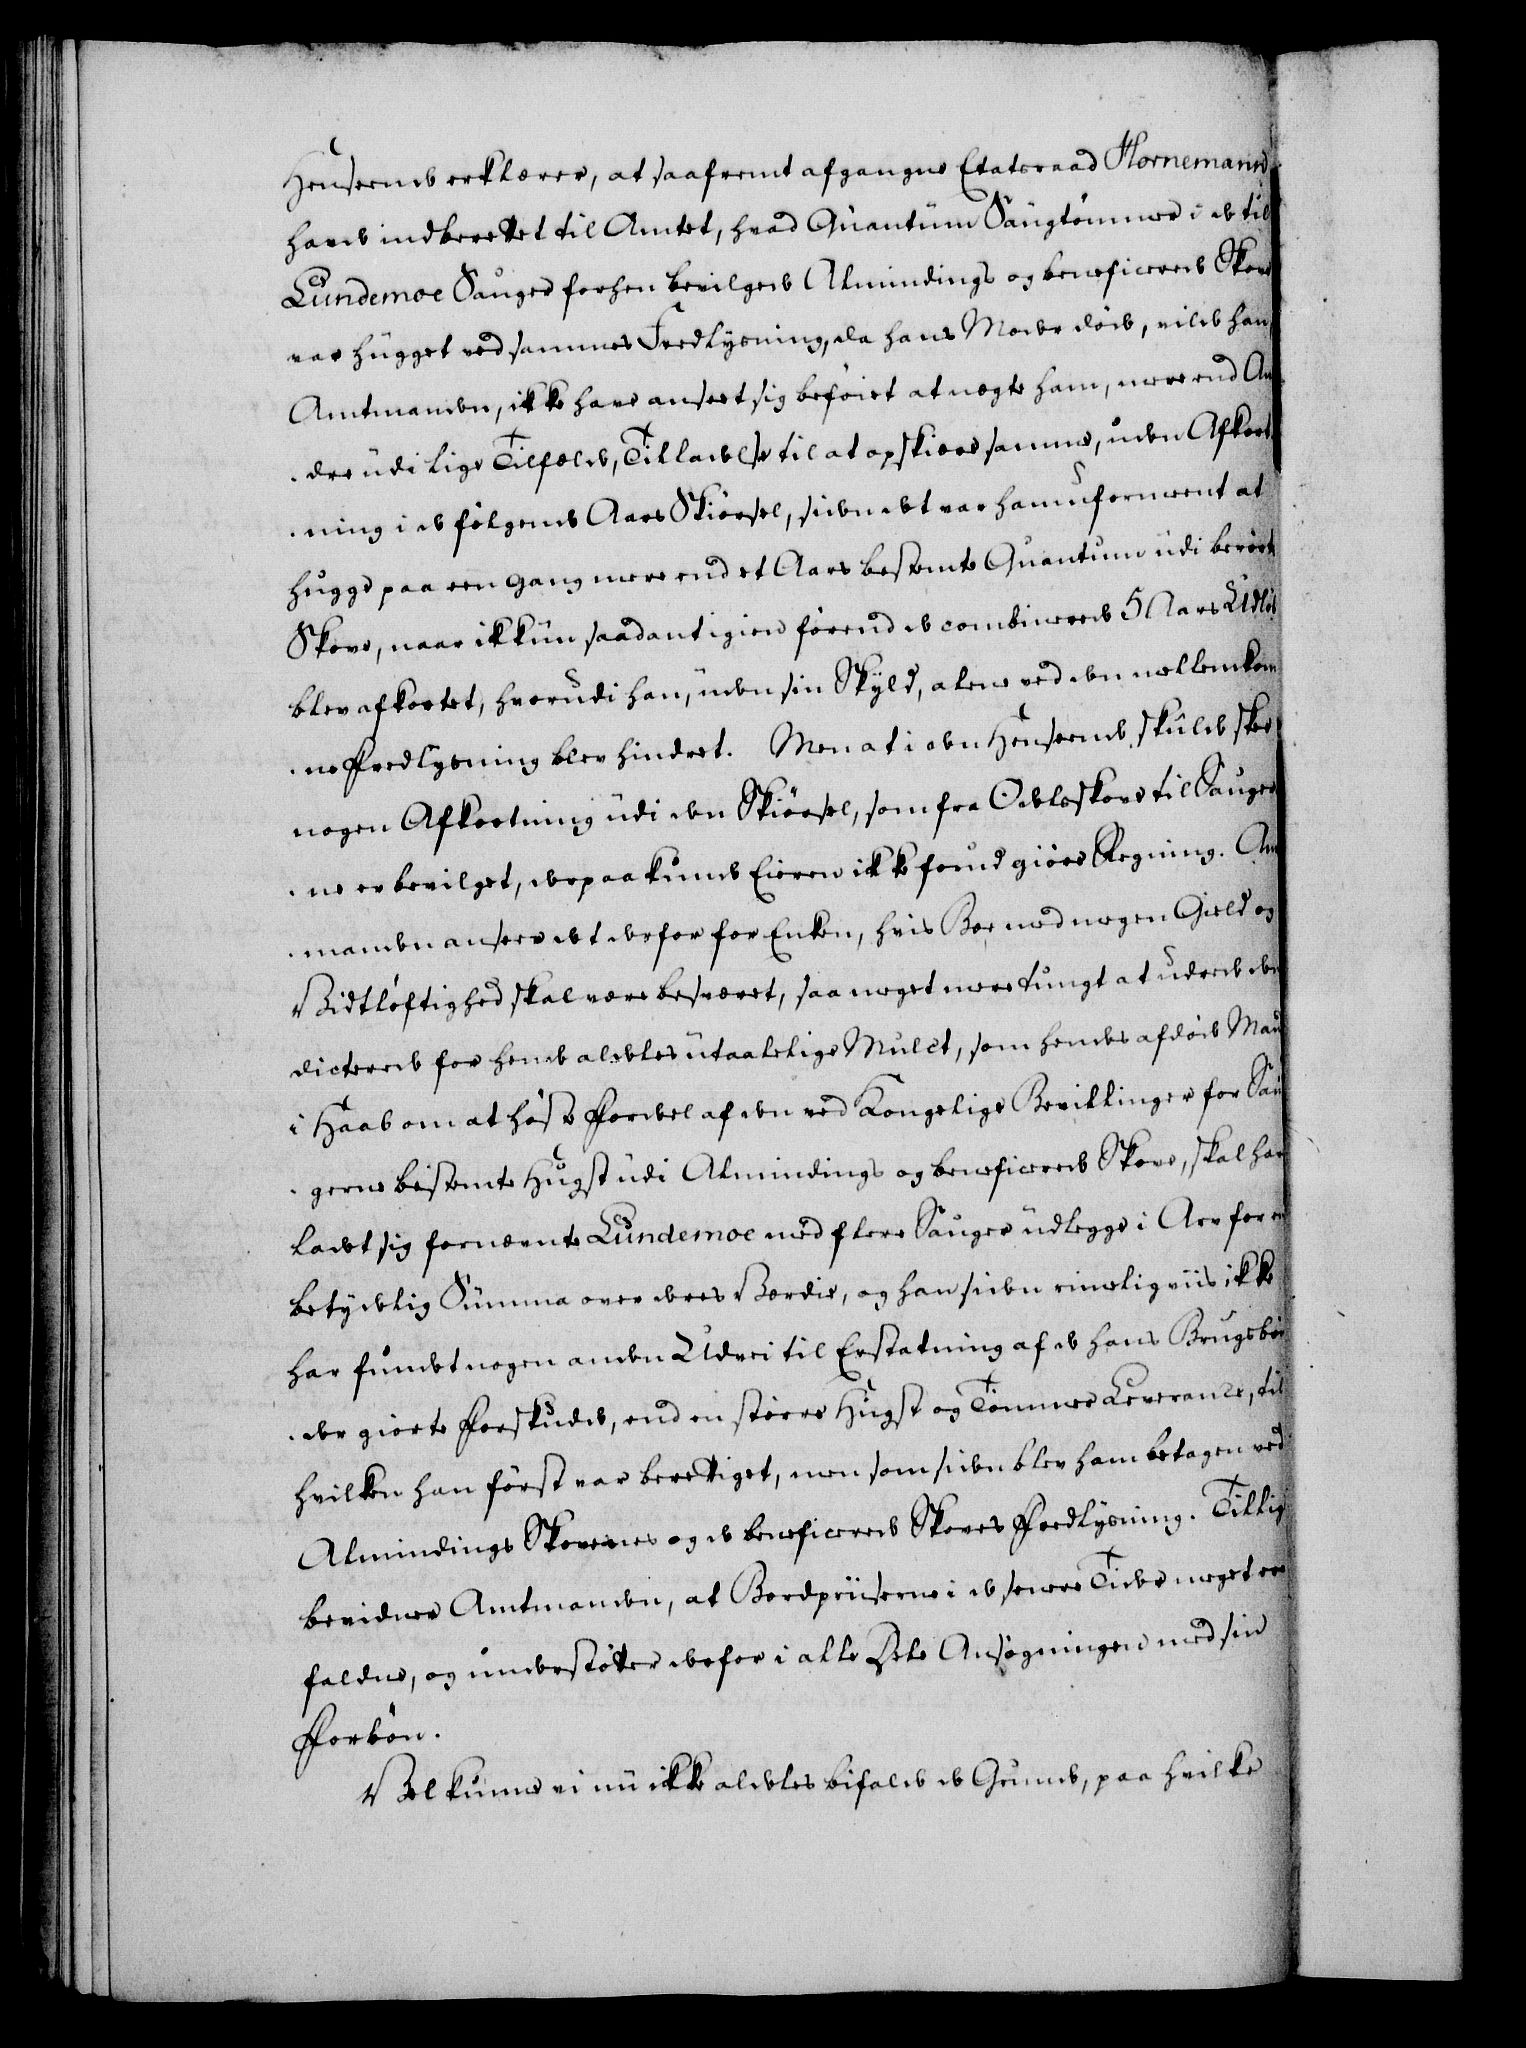 Henseende erklærer, at saafremt afgangne Etatsraad Hornemann
havde indberettet til Amtet, hvad Quantum Saugtømmer i de til
Lundemoe Sauger forhen bevilgede Almindings og beneficerede Skove
var hugget ved sammes Fredlysning, da hans Moder døde, vilde han
Amtmanden, ikke have anseet sig beføiet at nægte ham, mere end An
dre udi lige Tilfælde, Tilladelse til at opskiære samme, uden Afkort
ning i de følgende Aars Skiørsel, siden det var ham uformeent at
hugge paa een gang mere end et Aars bestemte Quantum udi berørte
Skove, naar ikkun saadant igien førend de combinerede 5 Aars Udløb
blev afkortet, hvorudi han, uden sin Skyld, alene ved den mellemkom
ne Fredlysning blev hindret. Men at i den Henseende skulde skee
nogen Afkortning udi den Skiørsel, som fra Odelsskove til Sauger
ne er bevilget, derpaa kunde Eieren ikke forud giøre Regning. Amt
manden anseer det derfor for Enken, hvis Boe med megen Gield og
Vidtløftighed skal være besværet, saa meget mere tungt at udrede den
dicterede for hende aldeles utaalelige Mulct, som hendes afdøde Mand
i Haab om at høste Fordel af den ved Kongelige Bevillinger for Sau
gerne bestemte Hugst udi Almindings og beneficerede Skove, skal have
ladet sig fornævnte Lundemoe med flere Sauger udlegge i Arv for en
betydelig Summa over deres Værdie, og han siden rimeligviis ikke
har fundet nogen anden Udvei til Erstatning af de hans Brugsbøn
der giorte Forskudde, end en større Hugst og Tømmer Leverance, til
hvilken han først var berettiget, men som siden blev ham betagen ved
Almindings Skovenes og de beneficerede Skoves Fredlysning. Tillige
bevidner Amtmanden, at Bordpriiserne i de senere Tider meget ere
faldne, og understøtter derfor i alle Dele Ansøgningen med sin
Forbøn.
Vel kunne vi nu ikke aldeles bifalde de Grunde, paa hvilke